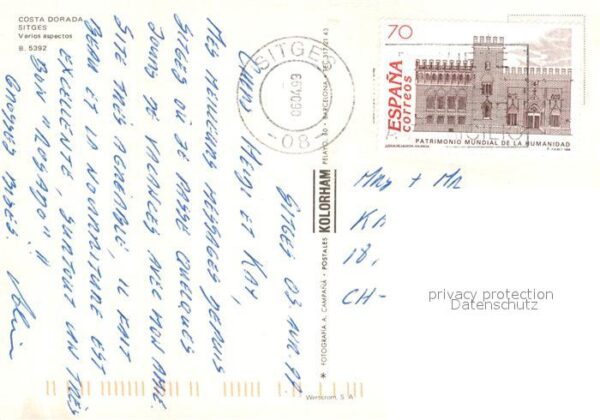 COSTA DORADA
SITGES
Varios aspectos
B. 5392
SITGES 03 AVR. 97
CHERS HEIDI ET KAY,
MES MEILLEURS MESSAGES DEPUIS
SITGES OÙ JE PASSE QUELQUES
JOURS DE VACANCES AVEC MON AMIE.
SITE TRÈS AGRÉABLE, IL FAIT
BEAU ET LA NOURRITURE EST
EXCELLENTE, SURTOUT UN TRÈS
BON "ROSADO"!!
GROSSES BISES.
SITGES
08
70
ESPAÑA
correos
PATRIMONIO MUNDIAL DE LA HUMANIDAD
* FOTOGRAFIA A. CAMPAÑÁ - POSTALES KOLORHAM PELAYO, 50 - BARCELONA
MRS + MR
KA
18,
CH-
privacy protection
Datenschutz